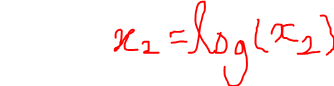 x₂ = log(x₂)